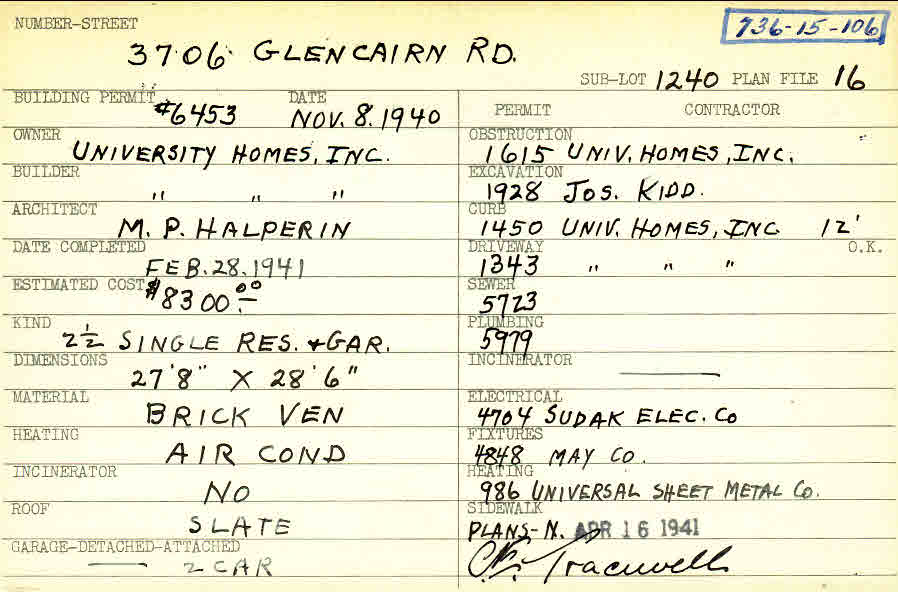 NUMBER-STREET
736-15-106
3706 GLENCAIRN RD.
SUB-LOT 1240 PLAN FILE 16
BUILDING PERMIT #6453 DATE NOV. 8. 1940
OWNER
UNIVERSITY HOMES, INC.
BUILDER
" " "
ARCHITECT
M. P. HALPERIN
DATE COMPLETED
FEB. 28. 1941
ESTIMATED COST $8300 00
KIND
2 1/2 SINGLE RES. + GAR.
DIMENSIONS
27'8" X 28'6"
MATERIAL
BRICK VEN
HEATING
AIR COND
INCINERATOR
NO
ROOF
SLATE
GARAGE-DETACHED-ATTACHED
2 CAR
PERMIT CONTRACTOR
OBSTRUCTION
1615 UNIV. HOMES, INC.
EXCAVATION
1928 JOS. KIDD.
CURB
1450 UNIV. HOMES, INC 12'
DRIVEWAY O.K.
1343 " " "
SEWER
5723
PLUMBING
5979
INCINERATOR
ELECTRICAL
4704 SUDAK ELEC. CO
FIXTURES
4848 MAY CO.
HEATING
986 UNIVERSAL SHEET METAL CO.
SIDEWALK
PLANS-N. APR 16 1941